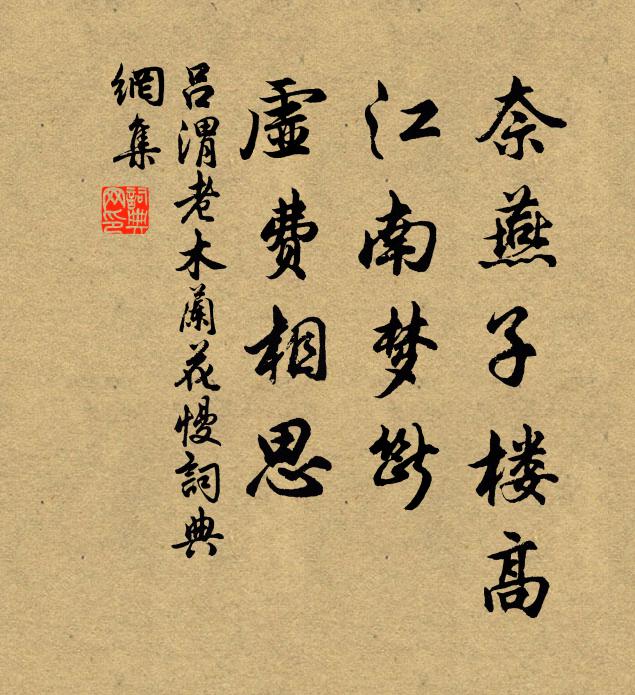 奈燕子楼高
江南梦断
虚费相思
吕渭老木蘭花慢詞典
網集
詞典
网印